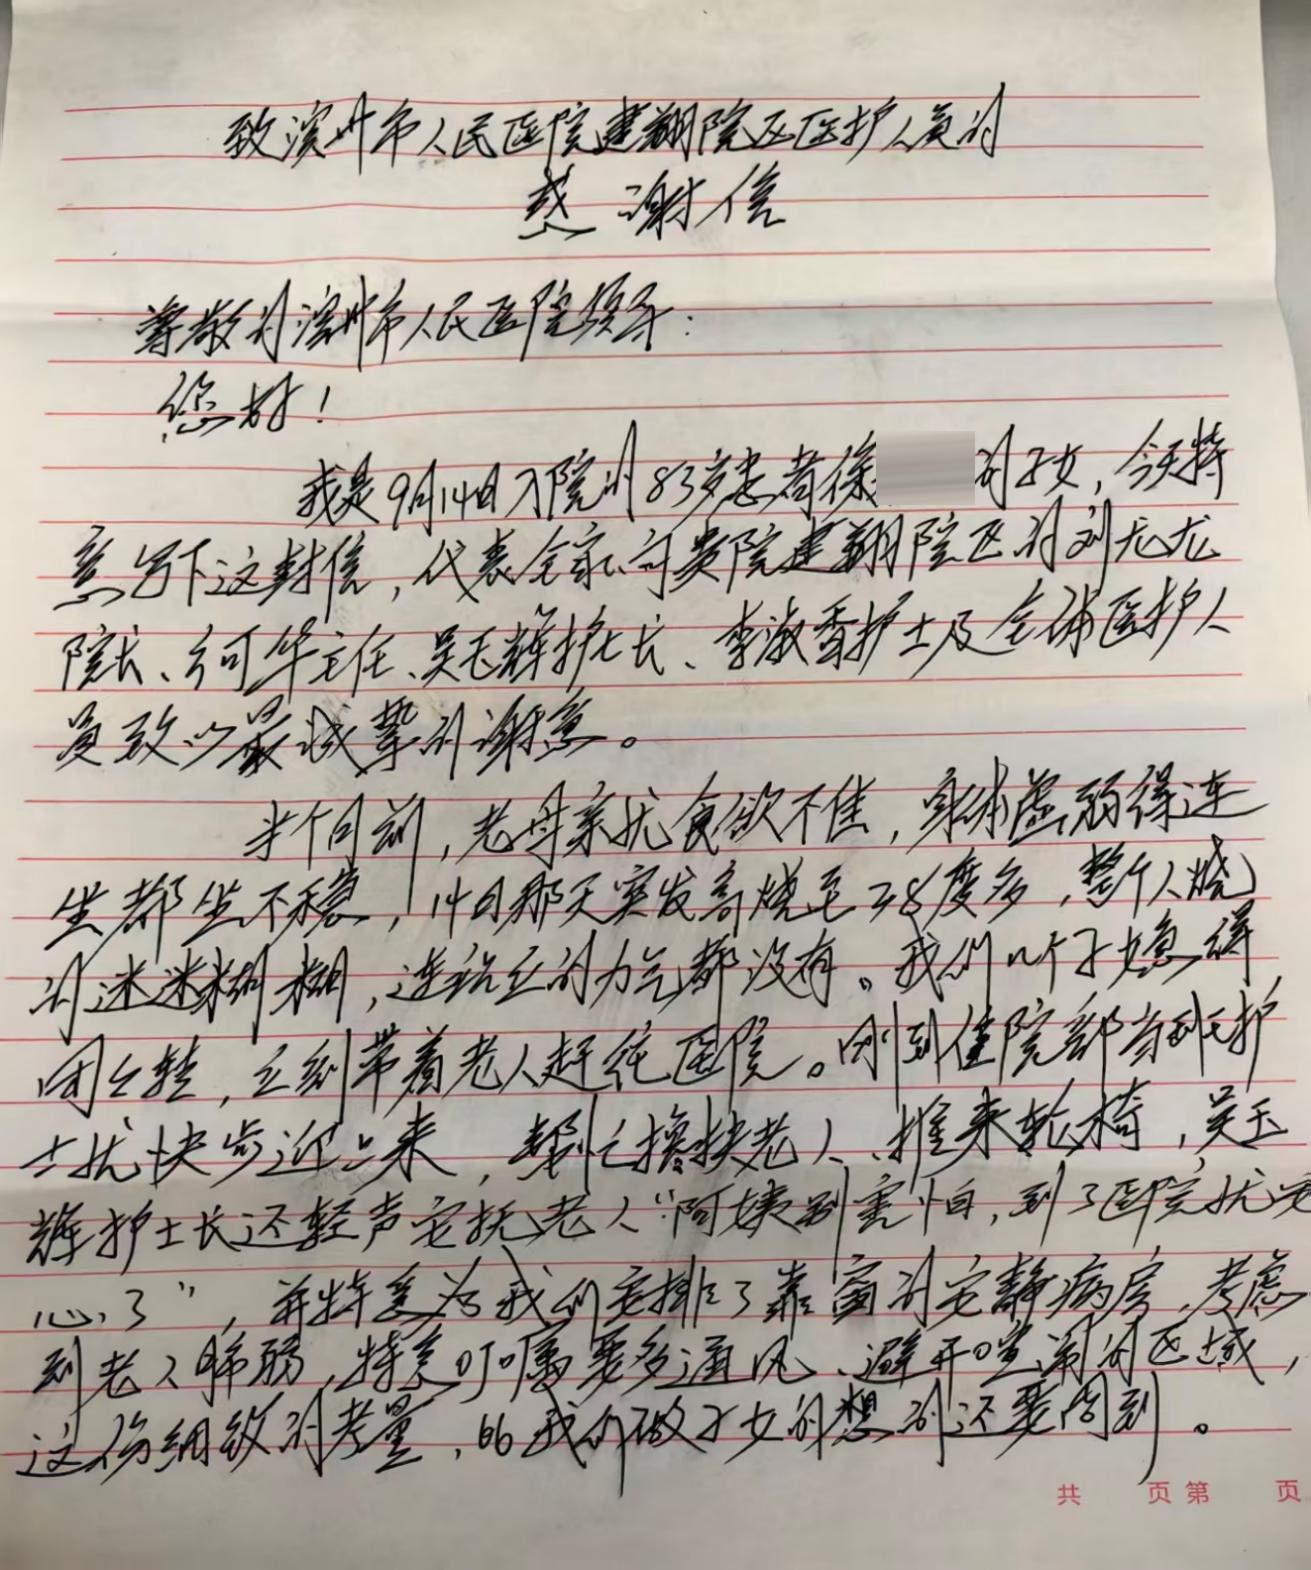 致滨州市人民医院建翔院区医护人员的
感谢信
尊敬的滨州市人民医院领导：
您好！
我是9月14日入院的83岁患者徐 的子女，今天特
意写下这封信，代表全家向贵院建翔院区的刘尤尤
院长、何华主任、吴玉辉护士长、李淑香护士及全体医护人
员致以最诚挚的谢意。
半个月前，老母亲就食欲不佳，身体虚弱得连
坐都坐不稳，14日那天突发高烧至38度多，整个人烧
的迷迷糊糊，连说话的力气都没有。我们几个子媳急得
团团转，立刻带着老人赶往医院。刚到住院部当班护
士就快步迎上来，帮忙搀扶老人、推来轮椅，吴玉
辉护士长还轻声安抚老人“阿姨别害怕，到了医院就安
心了”，并特意为我们安排了靠窗的安静病房，考虑
到老人肺弱，特意叮嘱要多通风、避开喧闹的区域，
这份细致的考量，比我们做子女的想的还要周到。
共 页 第 页